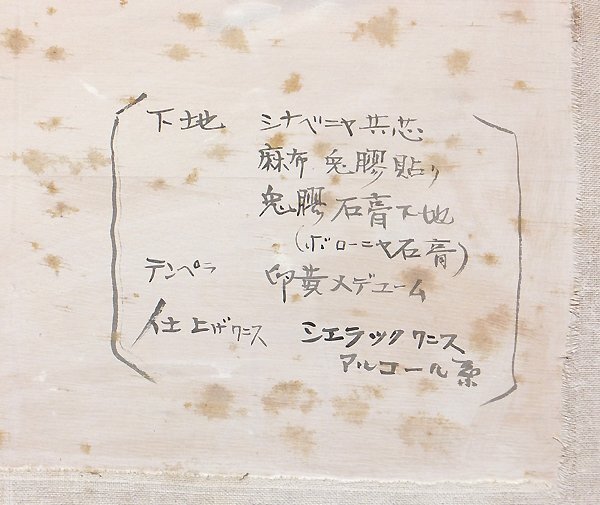 下地 シナベニヤ共芯
麻布 兎膠貼り
兎膠 石膏下地
(ボローニャ石膏)
テンペラ 卵黄メデューム
仕上げワニス シエラックワニス
アルコール系